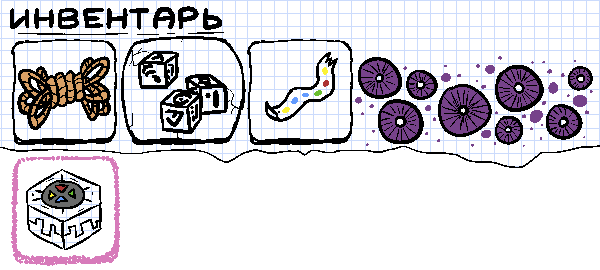 ИНВЕНТАРЬ